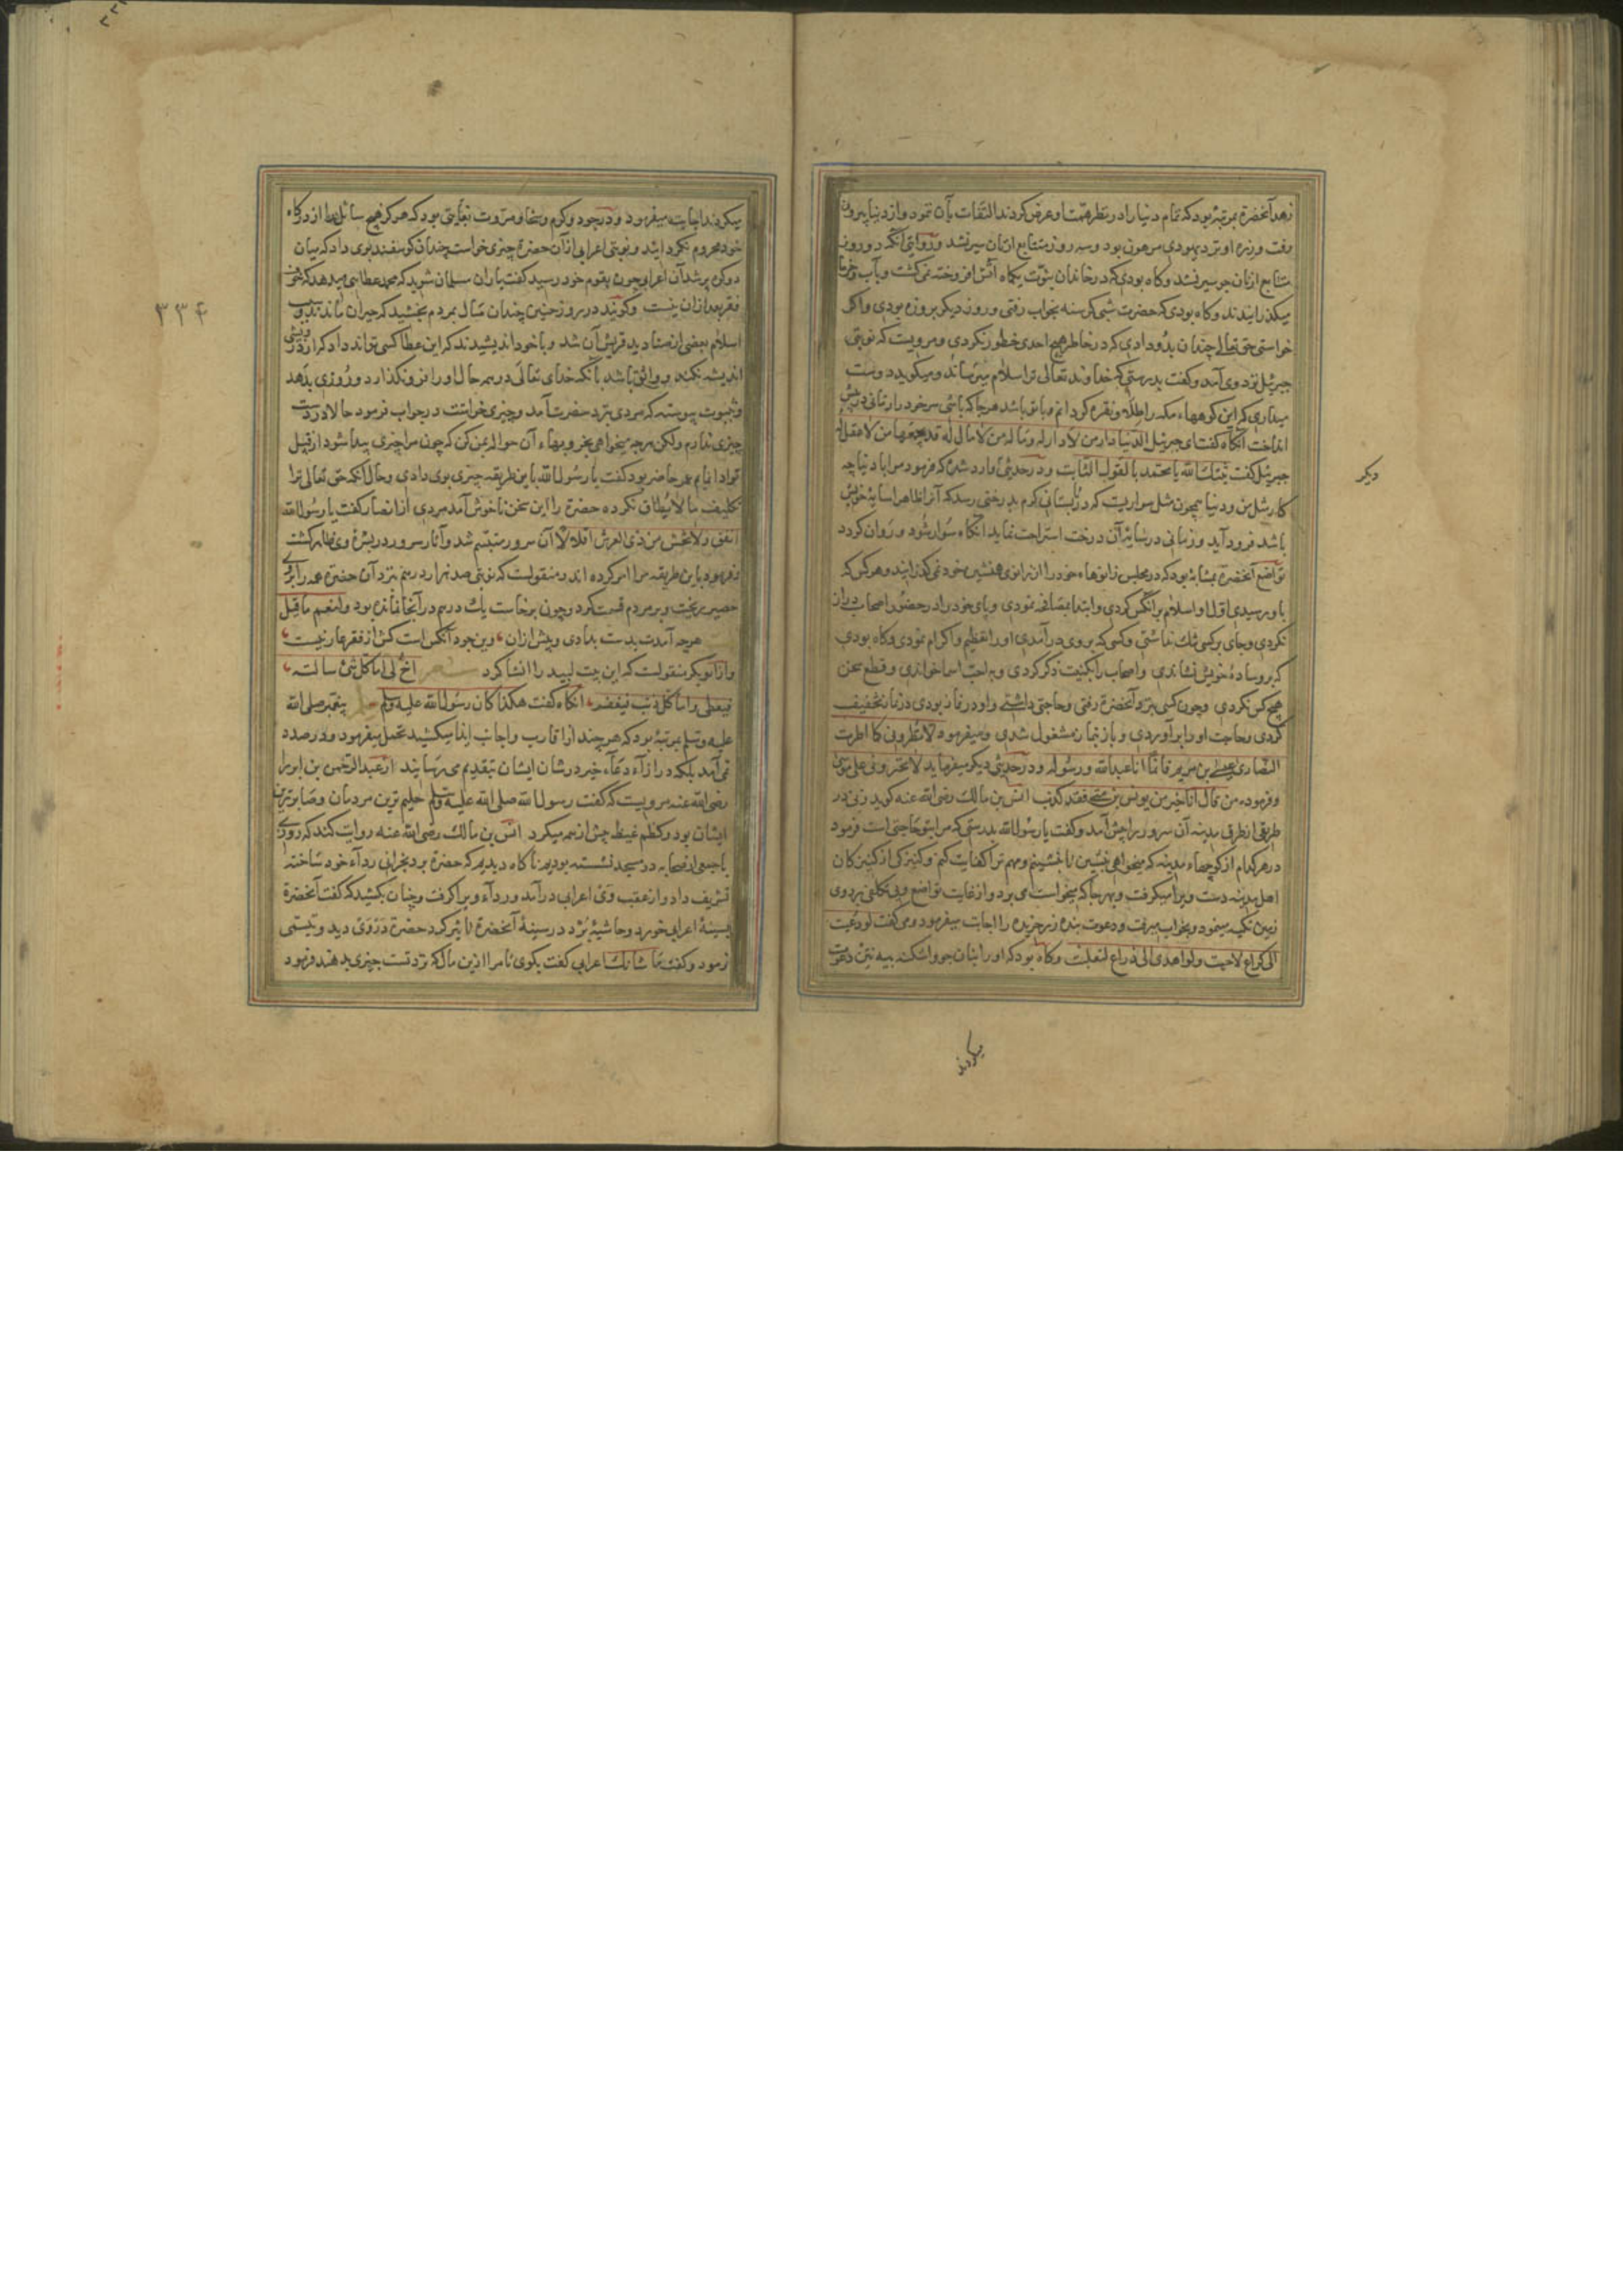 زهد آنحضرة بمرتبهٔ بود که تمام دنیا را در نظر همت او عرض کردند التفات بآن ننمود و از دنیا بیرون
رفت وزره او نزد یهودی مرهون بود وسه روز متتابع از نان سیر نشد و در روایتی آنکه دو روز
متتابع از نان جو سیر نشد وکاه بودی که در خاندان نبوّت یکماه آتش افروخته نمی کشت وبآب وخرما
میکذرانیدند وکاه بودی که حضرت شبی کرسنه بخواب رفتی وروز دیکر بروزه بودی واکر
خواستی حق تعالی چندان بدو دادی که در خاطر هیچ احدی خطور نکردی ومرویست که نوبتی
جبرئیل نزد وی آمد وکفت بدرستی که خداوند تعالی ترا سلام میرساند ومیکوید دوست
میداری که این کوههاء مکه را طلا ونقره کردانم وبا تو باشد هر جا که باشی سر خود را زمانی در پیش
انداخت آنکاه کفت ای جبرئیل الدنیا دار من لا دار له ومال من لا مال له قد یجمعها من لا عقل له
جبرئیل کفت ثبتك الله یا محمد بالقول الثابت ودر حدیثی وارد شده که فرمود مرا با دنیا چه
کار مثل من ودنیا همچون مثل سواریست که در تابستانی کرم بدرختی رسد که آنرا ظاهرا سایهٔ خویش
باشد فرود آید وزمانی در سایهٔ آن درخت استراحت نماید آنکاه سوار شود وروان کردد
تواضع آنحضرة بمثابهٔ بود که در مجلس زانوهاء خود را از زانوی همنشین خود نمی کذرانید وهر کس که
باو رسیدی اولا او سلام بر آنکس کردی وابتدا بمصافحه نمودی وپای خود را در حضور اصحاب دراز
نکردی وجای بر کسی تنك نداشتی وکسی که بروی در آمدی او را تعظیم واکرام نمودی وکاه بودی
که بر وسادهٔ خویش نشاندی واصحاب را بکنیت ذکر کردی وبه احب اسما خواندی وقطع سخن
هیچ کس نکردی وچون کسی نزد آنحضرة رفتی وحاجتی داشتی واو در نماز بودی در نماز تخفیف
کردی وحاجت او را بر آوردی وباز بنماز مشغول شدی ومیفرمود لا تطرونی کما اطرت
النصاری عیسی بن مریم فانما انا عبد الله ورسوله ودر حدیثی دیکر میفرماید لا تخیرونی علی موسی
وفرمود من قال انا خیر من یونس بن متی فقد کذب انس بن مالك رضی الله عنه کوید زنی در
طریقی از طرق مدینه آن سرور را پیش آمد وکفت یا رسول الله بدرستی که مرا بتو حاجتی است فرمود
در هر کدام از کوچهاء مدینه که میخواهی بنشین تا بنشینم ومهم ترا کفایت کنم وکنیزکی از کنیزکان
اهل مدینه دست ویرا میکرفت وبهر جا که میخواست می برد واز غایت تواضع وبی تکلفی بر روی
زمین تکیه مینمود وبخواب میرفت ودعوت بنده زر خریده را اجابت میفرمود ومی کفت لو دعیت
الی کراع لاجبت ولو اهدی الی ذراع لقبلت وکاه بود که او را بنان جو واشکنه پیه نتن دعوت
دیکر
میکردند
۳۳۴
میکردند اجابت میفرمود ودر جود وکرم وسخا ومروت بغایتی بود که هرکز هیچ سائل را از درکاه
خود محروم نکردانید ونوبتی اعرابی از آن حضرة چیزی خواست چندان کوسفند بوی داد که میان
دو کوه پر شد آن اعرابی چون بقوم خود رسید کفت یاران مسلمان شوید که محمد عطایی میدهد که خوف
فقر بعد از آن نیست وکویند در روز حنین چندان مال بمردم بخشید که حیران ماندند وسبب
اسلام بعضی از صنادید قریش آن شد وبا خود اندیشیدند که این عطا کسی تواند داد که از درویشی
اندیشه نکند وواثق باشد بآنکه خدای تعالی در همه حال او را فرو نکذارد وروزی بدهد
وبثبوت پیوسته که مردی نزد حضرت آمد وچیزی خواست در جواب فرمود حالا در دست
چیزی ندارم ولکن هرچه میخواهی بخر وبهاء آن حواله بمن کن که چون مرا چیزی پیدا شود از قبل
تو ادا نمایم عمر حاضر بود کفت یا رسول الله باین طریقه چیزی بوی دادی وحال آنکه حق تعالی ترا
تکلیف ما لا یطاق نکرده حضرة را این سخن ناخوش آمد مردی از انصار کفت یا رسول الله
انفق ولا تخش من ذی العرش اقلالا آن سرور متبسم شد وآثار سرور در بشرهٔ وی ظاهر کشت
وفرمود باین طریقه مرا امر کرده اند ومنقولست که نوبتی صد هزار درهم نزد آن حضرة آمد بر روی
حصیر بریخت وبر مردم قسمت کرد وچون برخاست یك درهم در آنجا نمانده بود ولنعم ما قیل
هرچه آمدت بدست بدادی وپیش ازان وین جود آنکس است کش از فقر عار نیست
واز ابو بکر منقولست که این بیت لبید را انشا کرد شعر اخ لی اما کل شئ سالته
فیعطی واما کل ذنب فیغفر آنکاه کفت هکذا کان رسول الله علیه وسلم حلم پیغمبر صلی الله
علیه وسلم بمرتبهٔ بود که هر چند از اقارب واجانب ایذا میکشید تحمل میفرمود ودر صدد
نمی آمد بلکه در ازاء دعاء خیر در شان ایشان بتقدیم می رسانید از عبد الرحمن بن ابزی
رضی الله عنه مرویست که کفت رسول الله صلی الله علیه وسلم حلیم ترین مردمان وصابرترین
ایشان بود وکظم غیظ پیش از همه میکرد انس بن مالك رضی الله عنه روایت کند که روزی
با جمعی از صحابه در مسجد نشسته بودیم ناکاه دیدیم که حضرة برد نجرانی رداء خود ساخته
تشریف داد واز عقب وی اعرابی درآمد ورداء ویرا کرفت وچنان بکشید که کفت آنحضرة
بسینهٔ اعرابی خورد وحاشیهٔ برد در سینهٔ آنحضرة تاثیر کرد حضرة در وی دید وتبسمی
فرمود وکفت ما شانك اعرابی کفت بکوی تا مرا ازین مال که نزد تست چیزی بدهند فرمود